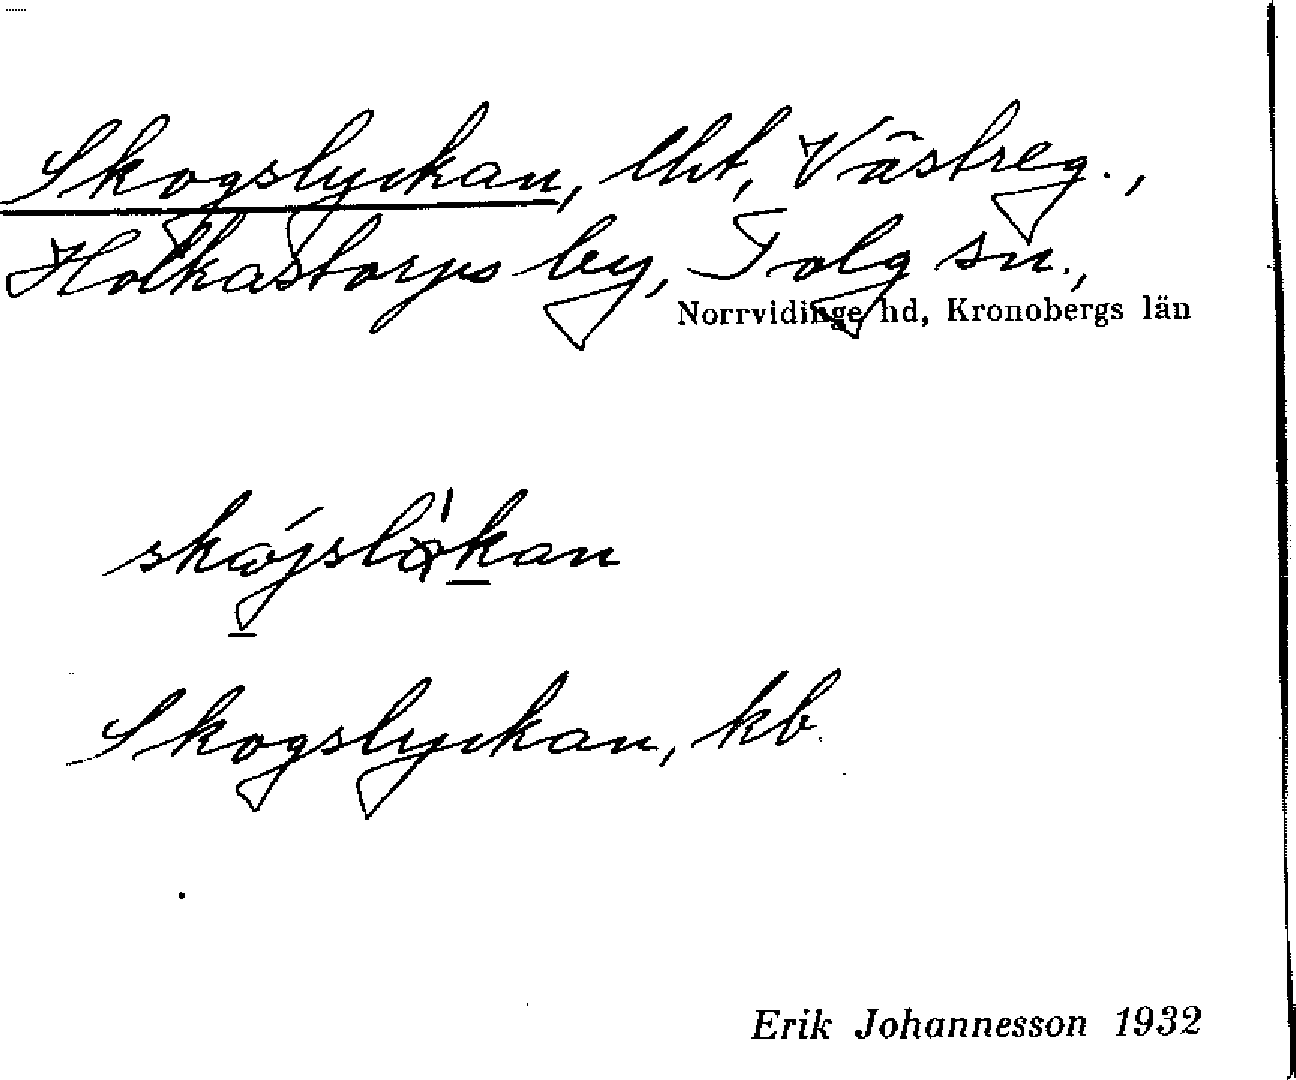 Skogslyckan, lht, Västreg.,
Holkastorps by, Tolg sn.,
Norrvidinge hd, Kronobergs län
Skogslyckan, kb.
Erik Johannesson 1932